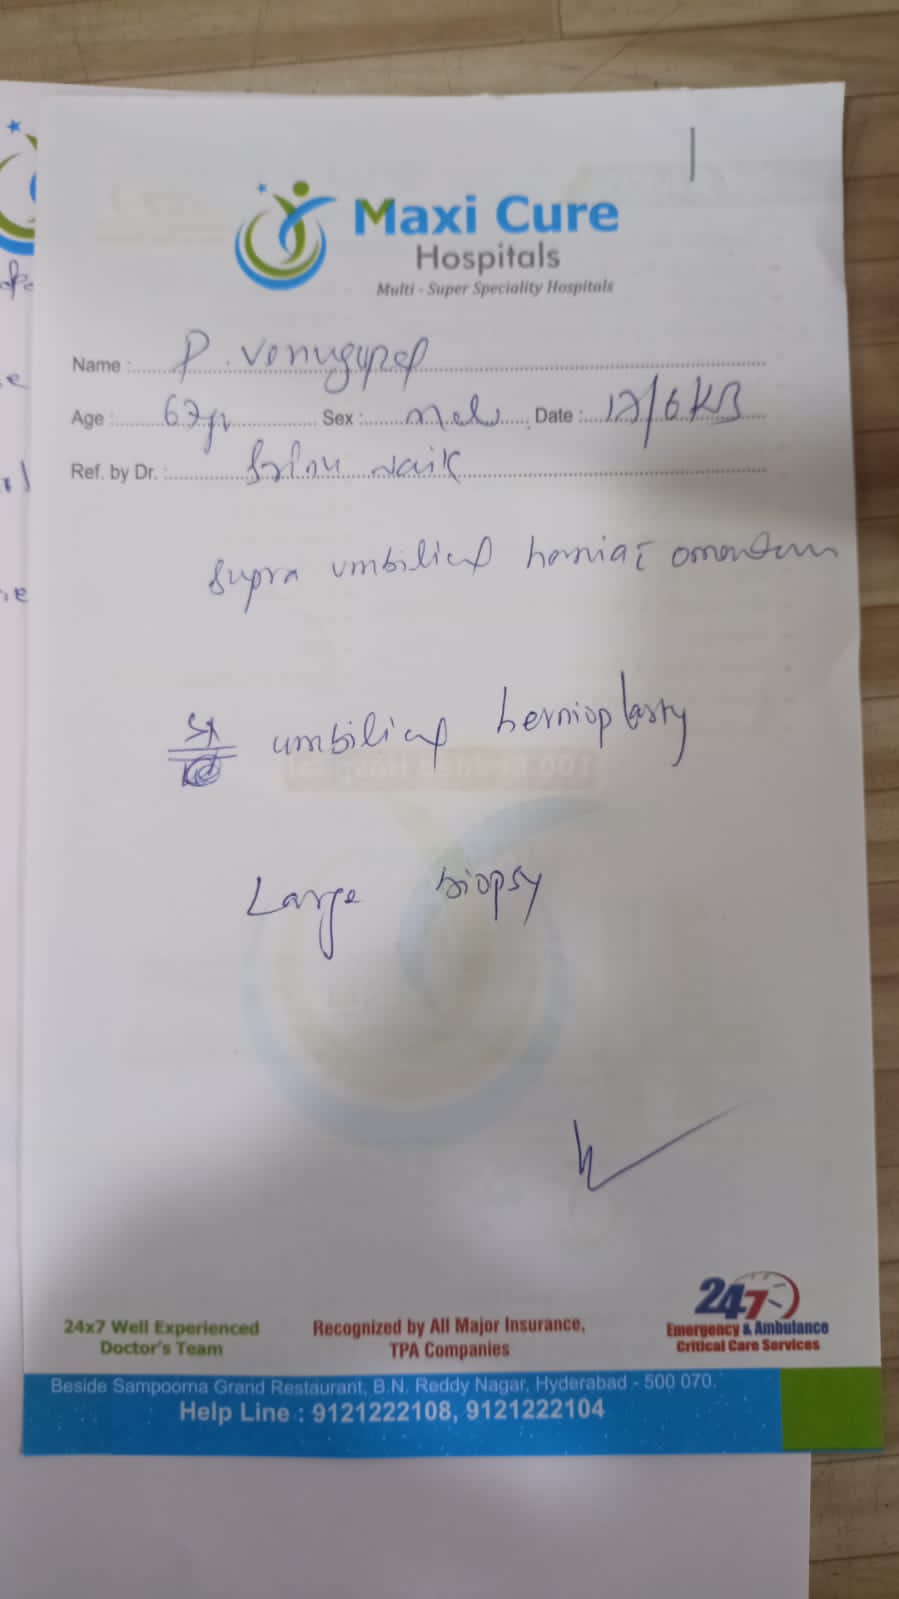 Maxi Cure
Hospitals
Multi - Super Speciality Hospitals
Name : P. Venugopal
Age : 67yr Sex : Male Date : 12/6/23
Ref. by Dr. : Srinu Naik
Supra umbilical hernia c̄ omentum
Sx umbilical hernioplasty
Large biopsy
24x7 Well Experienced
Doctor's Team
Recognized by All Major Insurance,
TPA Companies
247
Emergency & Ambulance
Critical Care Services
Beside Sampoorna Grand Restaurant, B.N. Reddy Nagar, Hyderabad - 500 070.
Help Line : 9121222108, 9121222104